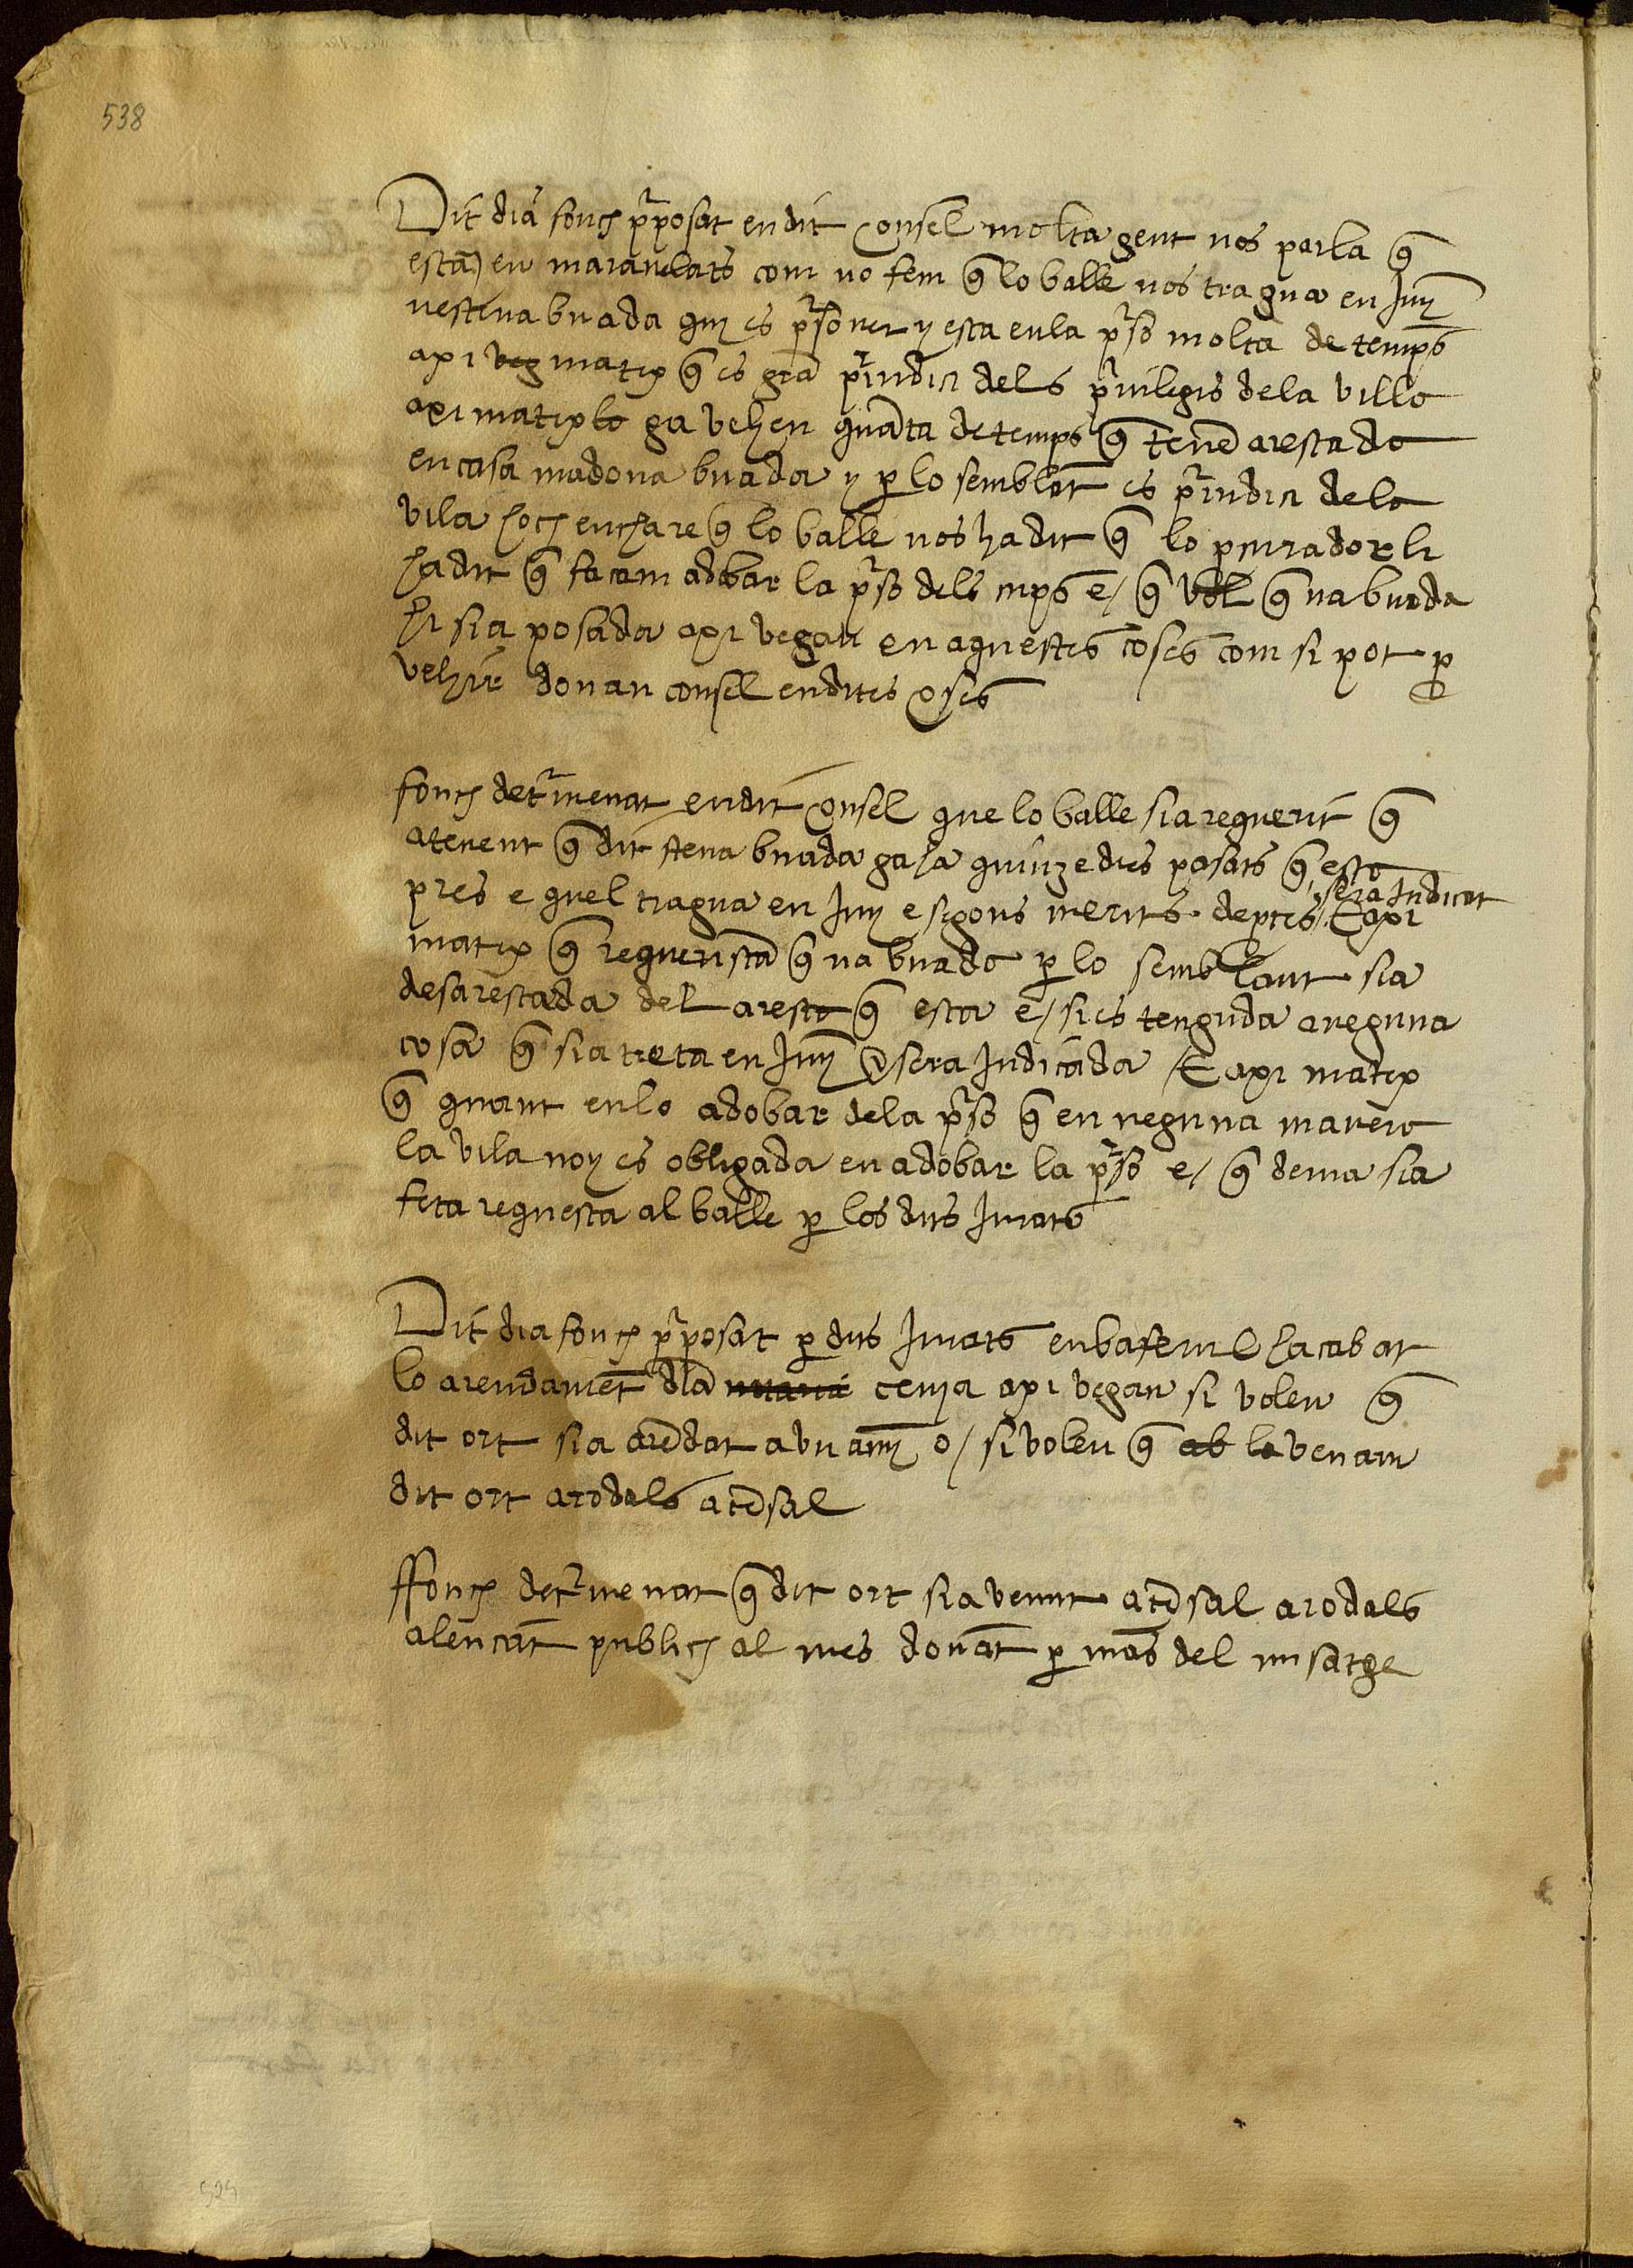 538
Dit dia fonch pposat en dit consel molta gent nos parla q̃
estã en maravelats com no fem q̃ lo balle nos tragua en juy
nesteva buada quy es psoner y esta en la pso molta de temps
axi veg matex q̃ es grã preiudici dels privilegis dela villa
axi matex lo ga vehen quãta de temps q̃ tenẽ arestada
en casa madona buada y p lo semblãt es preiudici dela
vila hoch enchare q̃ lo balle nos ha dit q̃ lo pcurador li
ha dit q̃ facam adobar la pso dels cups e/ q̃ vol q̃ na buada
hi sia posada axi vegan en aquestes coses com si pot p
vehir donan consel en dites coses
fonch determenat en dit consel que lo balle sia requerit q̃
atenent q̃ dit steva buada ga ha quinze dies pasats q̃ esta
pres e quel tragua en juy e segons merits deptes sera iudicat
E axi
matex q̃ requeristã q̃ na buada p lo semblant sia
desarestada del aresta q̃ esta e/ si es tenguda a neguna
cosa q̃ sia treta en juy @ sera iudicada / E axi matex
q̃ quant en lo adobar dela pso q̃ en neguna manera
la vila noy es obligada en adobar la pso e/ q̃ dema sia
feta requesta al balle p los dits jurats
Dit dia fonch pposat p dits jurats en bafernel ha cabat
lo arendamẽt dla cenya axi vegan si volen q̃
dit ort sia arẽdat a vn any o/ si volen q̃ ab lo venam
dit ort a rodals a cẽsal
ffonch determenat q̃ dit ort sia venut a cẽsal a rodals
al encãt publich al mes donãt p mãs del misatge
525